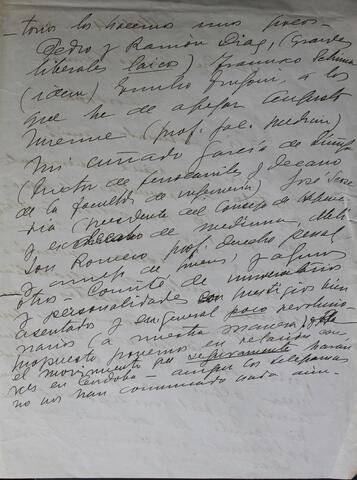 — todos lo hacemos unos pocos —
Pedro y Ramón Diaz, (grandes
liberales laicos) Francisco
(idem) Emilio a los
que he de agregar Augusto
(prof. fac. medicina)
mi cuñado García de
(Director de ferrocarriles y decano
de la facultad de ingeniería) José
(presidente del Consejo de
y ex decano de medicina,
Romero prof. derecho penal
y algunos
otros — Comité de universitarios
y personalidades con prestigios bien
asentados y en general poco revolucio-
narios (a nuestra manera)
propuesto ponernos en relación con
el movimiento que seguramente harán
Vdes en Córdoba — aunque los telegramas
no nos han comunicado nada aún. —